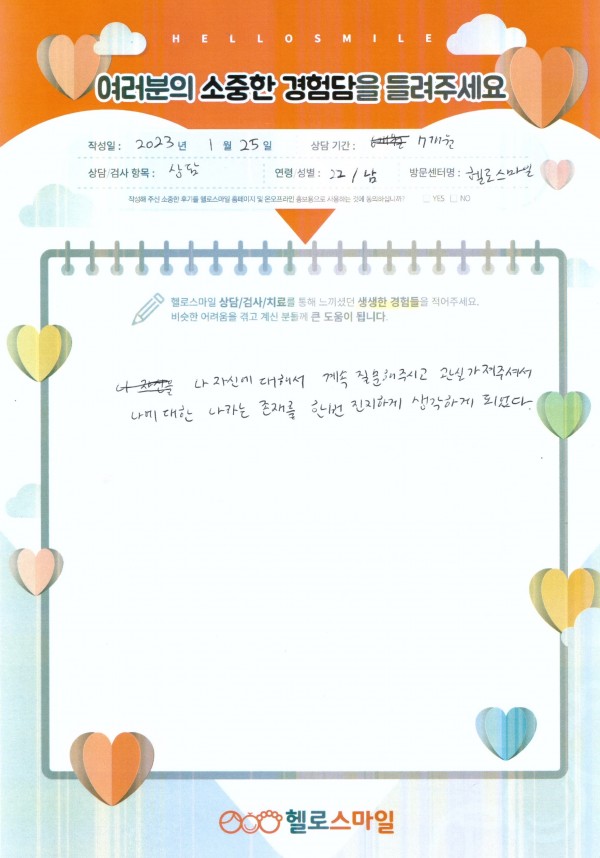 HELLOSMILE
여러분의 소중한 경험담을 들려주세요
작성일 : 2023 년 1 월 25 일 상담 기간 : 7개월
상담/검사 항목 : 상담 연령/성별 : 22 / 남 방문센터명 : 헬로스마일
작성해 주신 소중한 후기를 헬로스마일 홈페이지 및 온오프라인 홍보용으로 사용하는 것에 동의하십니까? YES NO
헬로스마일 상담/검사/치료를 통해 느끼셨던 생생한 경험들을 적어주세요.
비슷한 어려움을 겪고 계신 분들께 큰 도움이 됩니다.
나 자신에 대해서 계속 질문해주시고 관심가져주셔서
나에 대한 나라는 존재를 한번 진지하게 생각하게 되었다.
헬로스마일